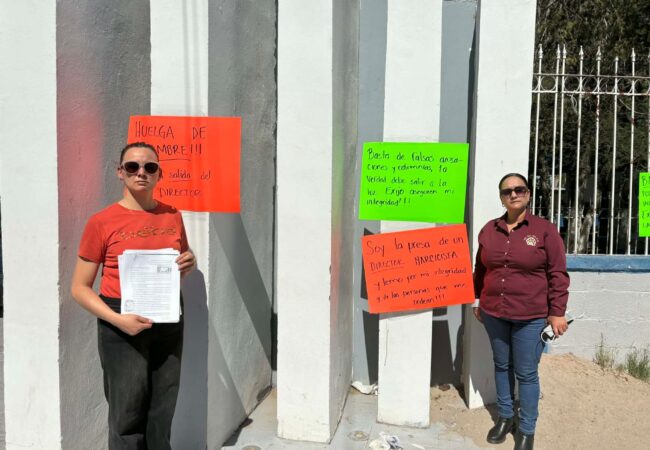 HUELGA DE
HAMBRE!!!
salida del
DIRECTOR.
Basta de falsas
y calumnias, la
verdad debe salir a la
luz. Exijo aseguren mi
integridad!!!
Soy la presa de un
DIRECTOR NARCICISTA
y temo por mi integridad
y de las personas que me
rodean!!!